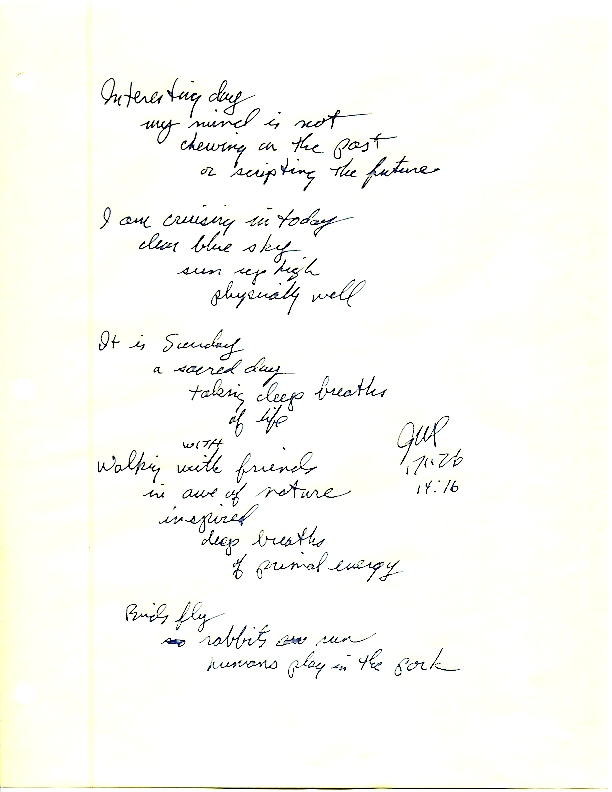 Interesting day
my mind is not
chewing on the past
or scripting the future
I am cruising in today
clear blue sky
sun up high
physically well
It is Sunday
a sacred day
taking deep breaths
of life
WITH
Walking with friends
in awe of nature
inspired
deep breaths
of primal energy
JWP
14:16
Birds fly
rabbits run
humans play in the park